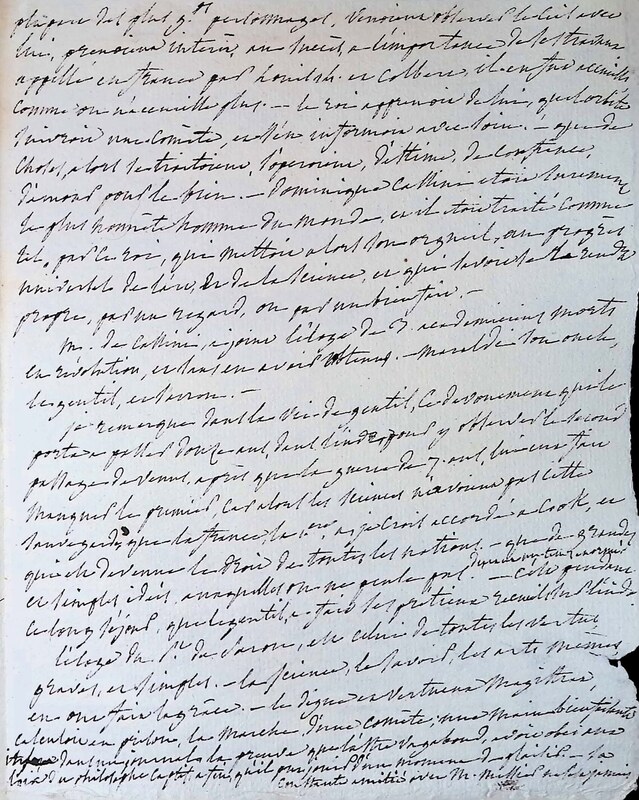 plupart des plus gds personnages, venoient observer le ciel avec
lui, prenoient interêt, au succès, a l'importance de ses travaux
appellé en france par Louis 14. et Colbert, il en fut accueilli
comme on n'accueille plus. — le roi apprenoit de lui, quel orbite
suivroit une comète, et s'en informoit avec soin. — que de
choses, alors se traitoient, s'operoient, d'estime, de confiance,
d'amour pour le bien. — Dominique Cassini etoit surement
le plus honnête homme du monde, et il etoit traité comme
tel, par le roi, qui mettoit alors son orgueil, au progrès
universel de l'art, et de la science, et qui savoit se le rendre
propre, par un regard, ou par un bienfait. —
M. de Cassini, a joint l'éloge de 3 academiciens morts
en revolution, et sans en avoir obtenus. — Maraldi son oncle,
le gentil, et Saron. —
je remarque dans la vie de gentil, ce devouement qui le
porta a passer douze ans, dans l'inde, pour y observer le second
passage de venus, après que la guerre de 7 ans, lui eut fait
manquer le premier, car alors les sciences n'avoient pas cette
sauvegarde que la france la 1ere, a je crois accordé a Cook, et
qui est devenue le droit de toutes les nations — que de grandes
et simples idées, auxquelles on ne pense pas — c'est pendant
ce long sejour, que legentil, a fait ses pretieux recueils sur l'inde
l'éloge du Pt. de Saron, est celui de toutes les vertus
graves, et simples. — la science, le savoir, les arts mêmes,
en ont fait la grâce. — le digne et vertueux Magistrat,
calculoit en prison, la marche d'une comète, une main bienfaisante
dans un journal la preuve que l'astre vagabond, avoit obéi aux
loix du philosophe captif, afin, qu'il put jouir d'un moment de plaisir. — sa
constante amitié avec M. Messier